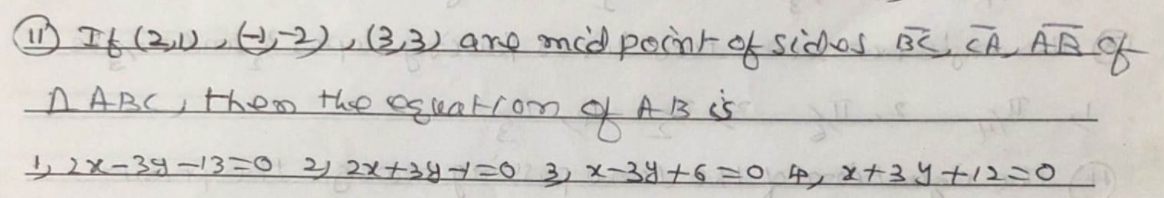 11) If (2,1), (-1,-2), (3,3) are mid point of sides B̅C̅, C̅A̅, A̅B̅ of
Δ ABC, then the equation of AB is
1, 2x-3y-13=0 2) 2x+3y-1=0 3, x-3y+6=0 4, x+3y+12=0